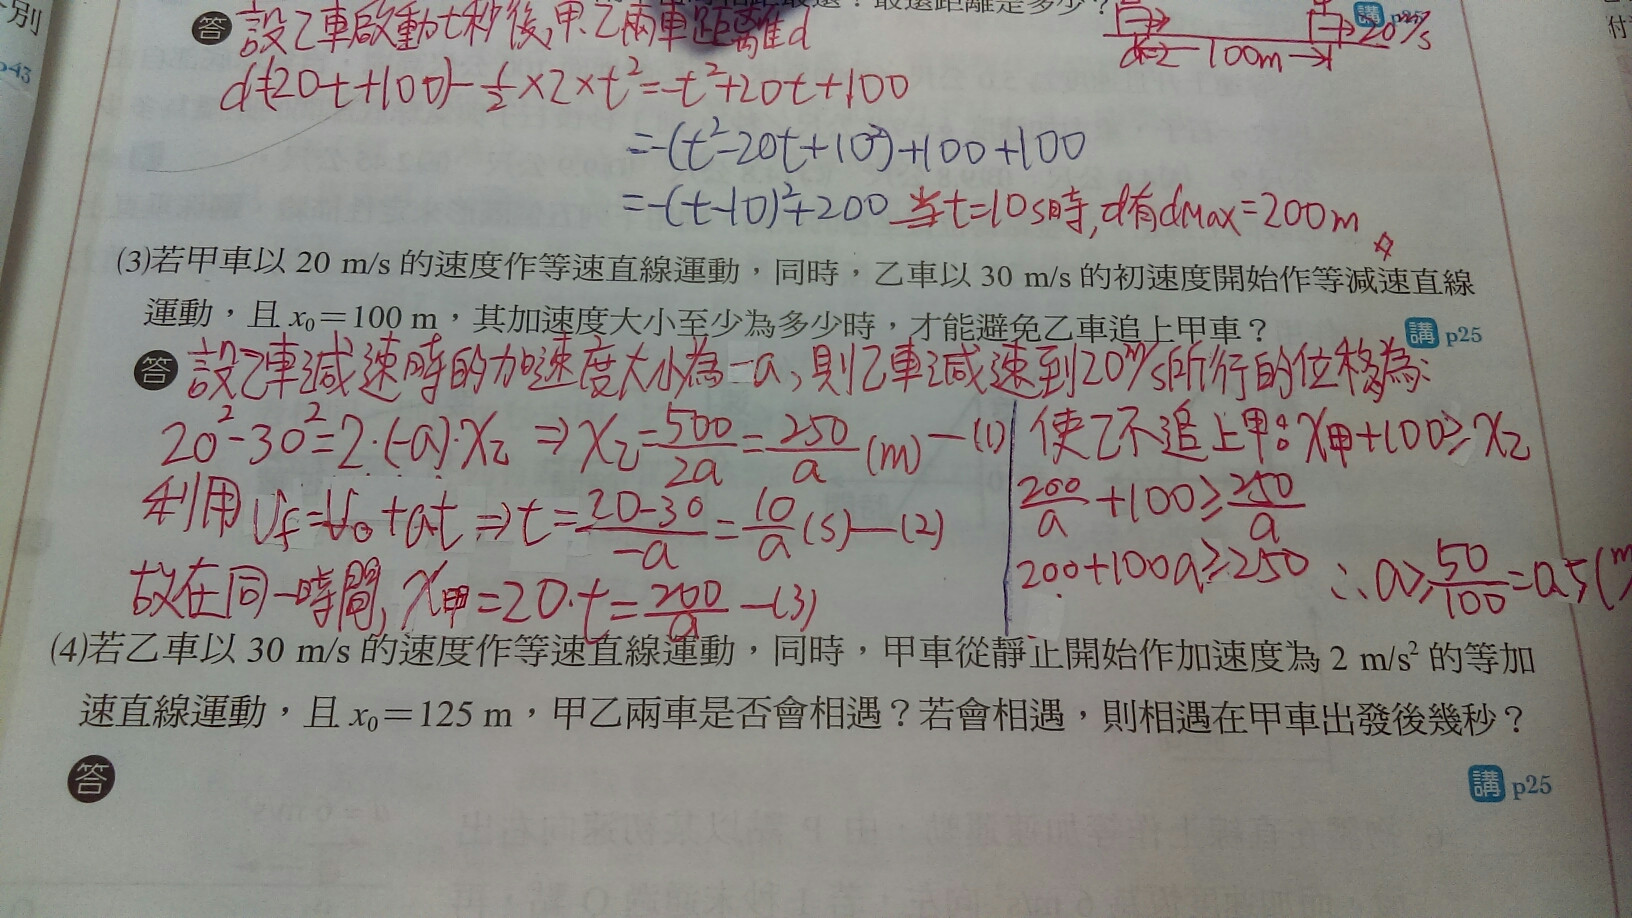 最遠距離是多少?
答 設乙車啟動t秒後,甲.乙兩車距離d
20m/s
100m
d=(20t+100)-½×2×t²=-t²+20t+100
=-(t²-20t+10²)+100+100
=-(t-10)²+200 當t=10s時,d有dMax=200m
(3)若甲車以 20 m/s 的速度作等速直線運動,同時,乙車以 30 m/s 的初速度開始作等減速直線
運動,且 x₀=100 m,其加速度大小至少為多少時,才能避免乙車追上甲車?
講 p25
答 設乙車減速時的加速度大小為-a,則乙車減速到20m/s所行的位移為:
20²-30²=2·(-a)·x乙 ⇒ x乙=500/2a=250/a (m)—(1)
利用 Vf=V₀+at ⇒ t=20-30/-a=10/a (s)—(2)
故在同一時間, x甲=20·t=200/a —(3)
使乙不追上甲: x甲+100≥x乙
200/a+100≥250/a
200+100a≥250 ∴a≥50/100=0.5(m
(4)若乙車以 30 m/s 的速度作等速直線運動,同時,甲車從靜止開始作加速度為 2 m/s² 的等加
速直線運動,且 x₀=125 m,甲乙兩車是否會相遇?若會相遇,則相遇在甲車出發後幾秒?
答
講 p25